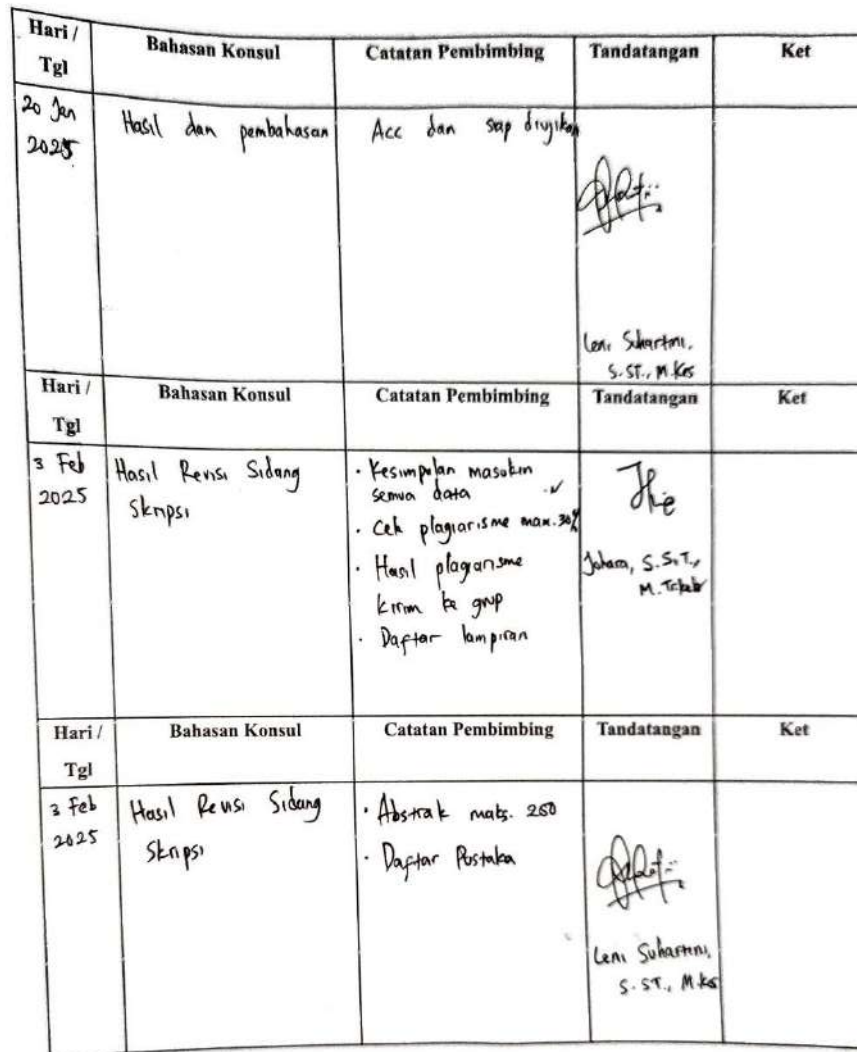 Hari / Tgl Bahasan Konsul Catatan Pembimbing Tandatangan Ket
20 Jan 2025 Hasil dan pembahasan Acc dan siap diujikan
Leni Suhartini,
S.ST., M.Kes
Hari / Tgl Bahasan Konsul Catatan Pembimbing Tandatangan Ket
3 Feb 2025 Hasil Revisi Sidang Skripsi
· Kesimpulan masukin
semua data
· Cek plagiarisme max. 30%
· Hasil plagiarisme
kirim ke grup
· Daftar lampiran
Johara, S.S.T.,
Hari / Tgl Bahasan Konsul Catatan Pembimbing Tandatangan Ket
3 Feb 2025 Hasil Revisi Sidang Skripsi
· Abstrak maks. 250
· Daftar Pustaka
Leni Suhartini,
S.ST., M.Kes